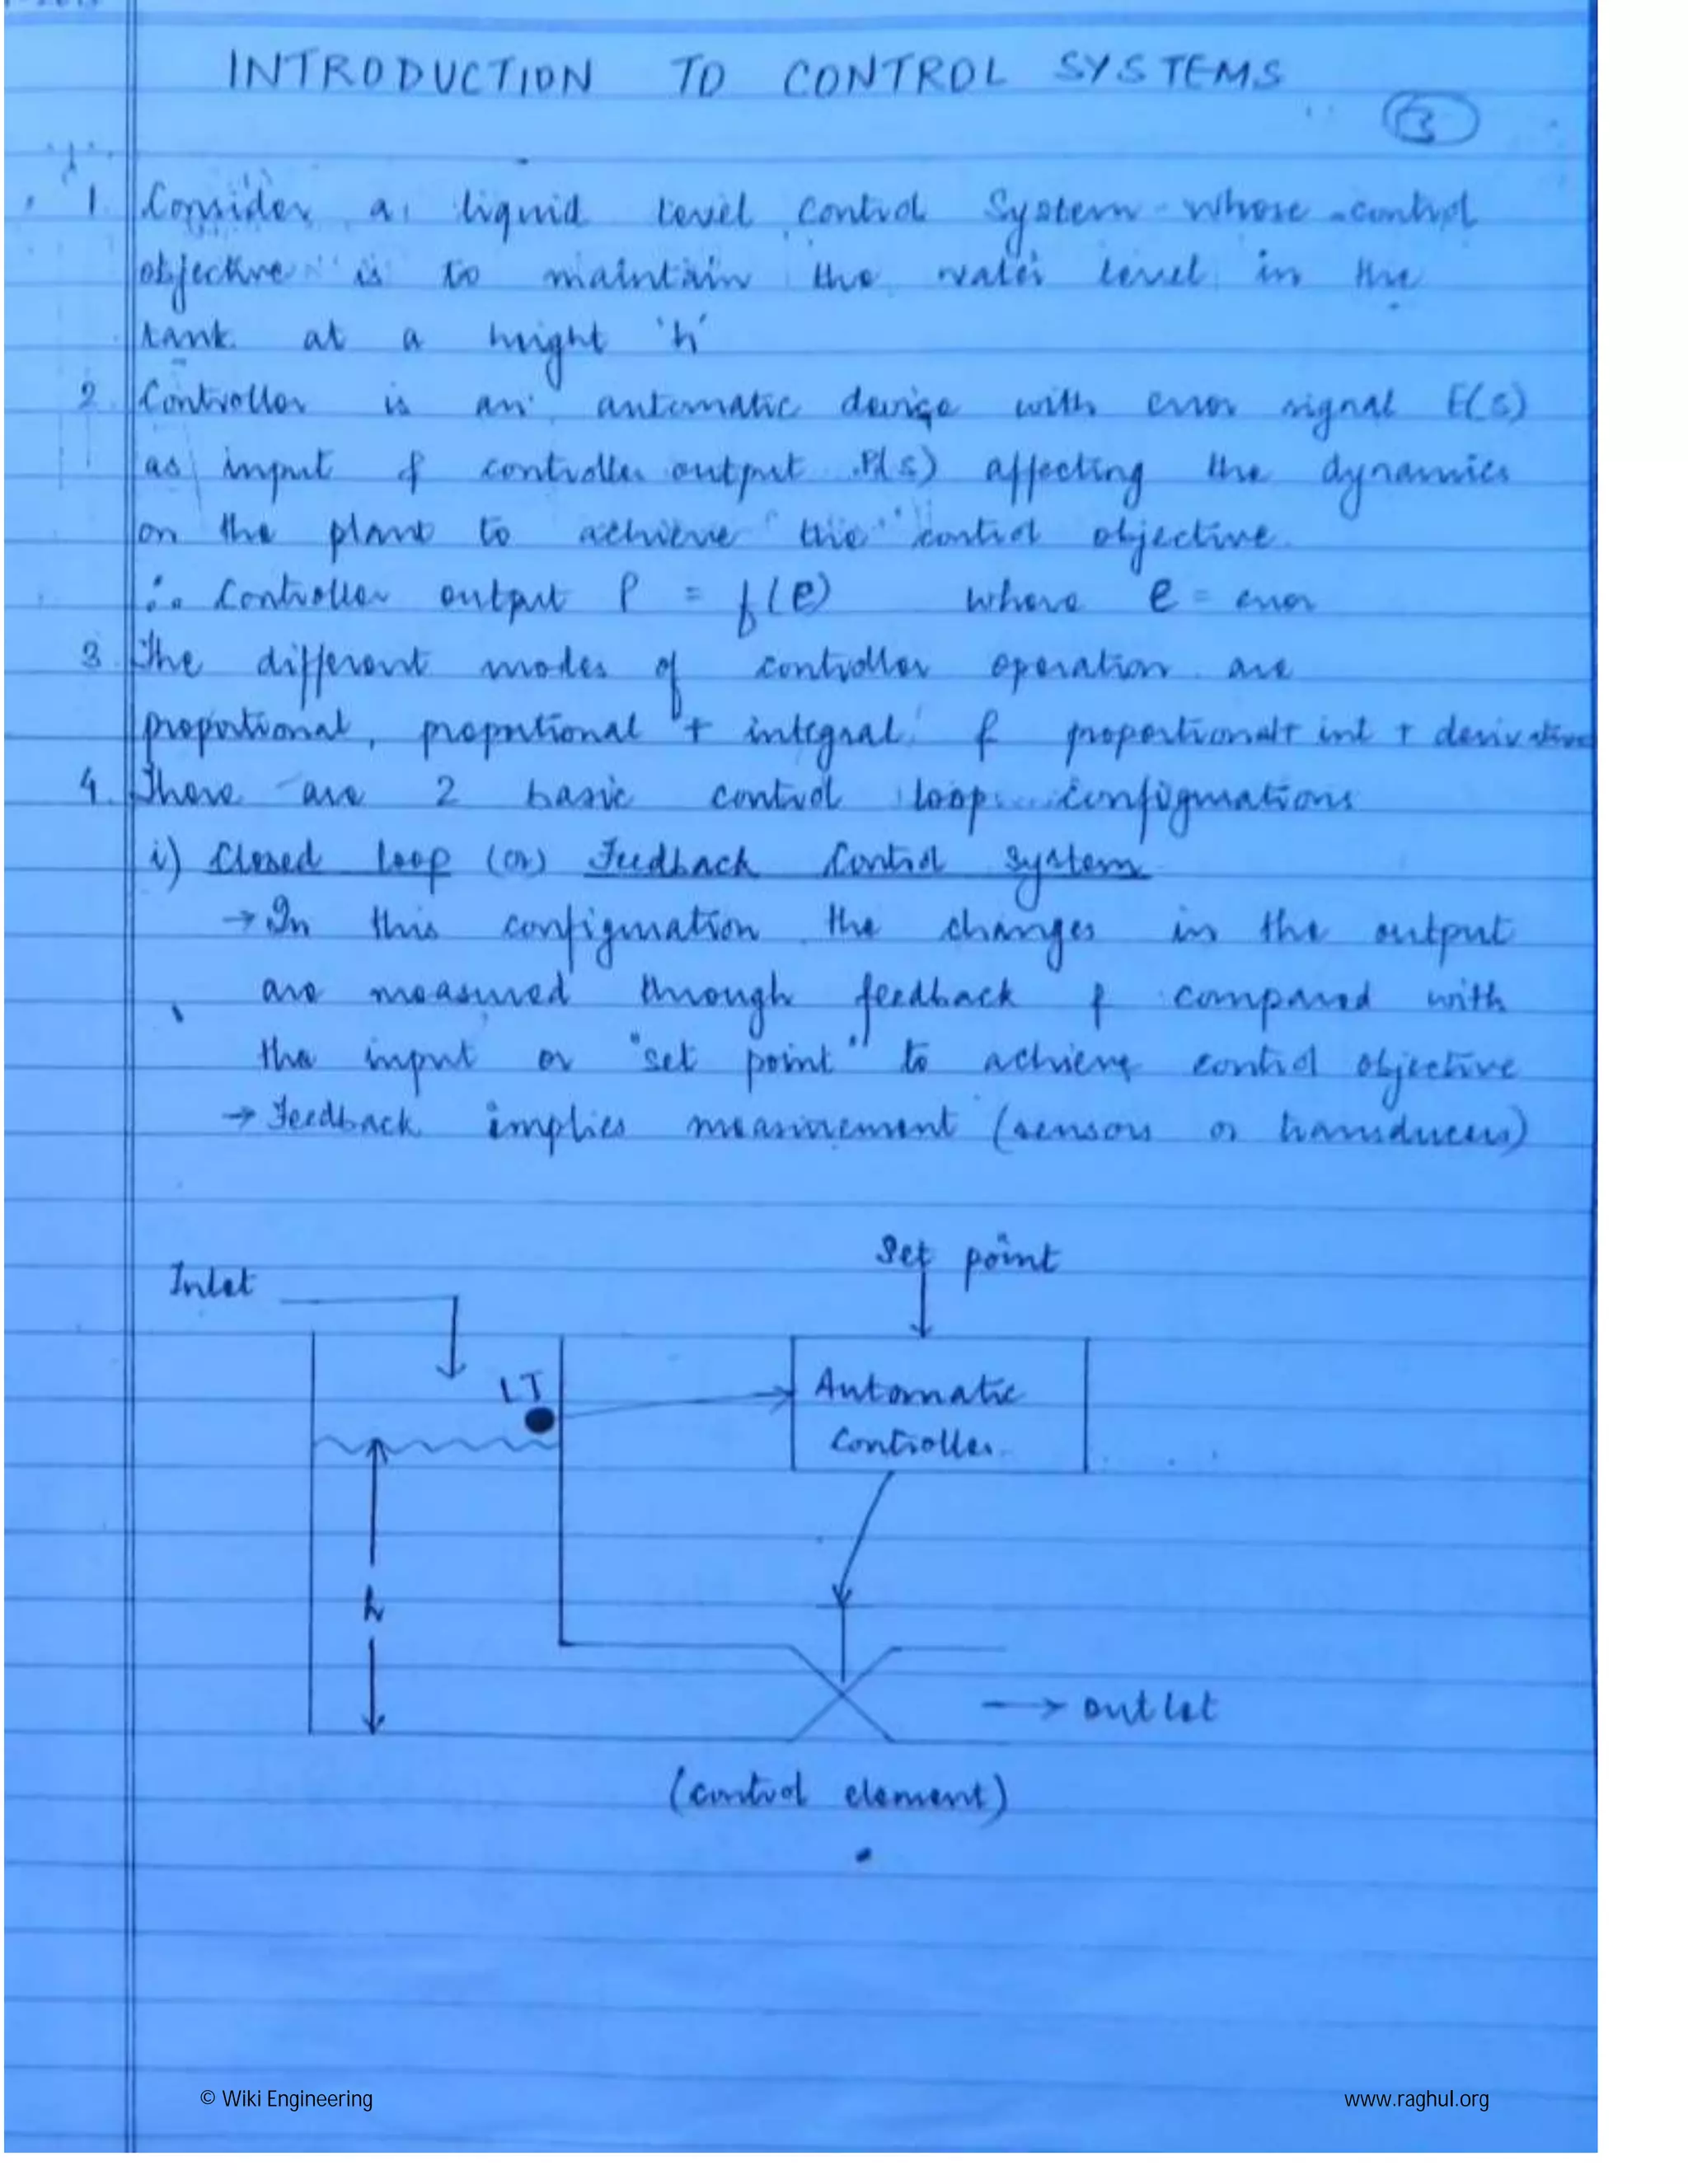 INTRODUCTION TO CONTROL SYSTEMS
3
1. Consider a liquid level control System whose control
objective is to maintain the water level in the
tank at a height 'h'
2. Controller is an automatic device with error signal E(s)
as input & controller output P(s) affecting the dynamics
on the plant to achieve the control objective.
∴ Controller output P = f(e) where e = error
3. The different modes of controller operation are
proportional, proportional + integral & proportional + int + derivative
4. There are 2 basic control loop configurations
i) Closed loop (or) Feedback Control System
→ In this configuration the changes in the output
are measured through feedback & compared with
the input or "set point" to achieve control objective
→ Feedback implies measurement (sensors or transducers)
Set point
Inlet
LT
Automatic
Controller
h
→ outlet
(control element)
© Wiki Engineering
www.raghul.org